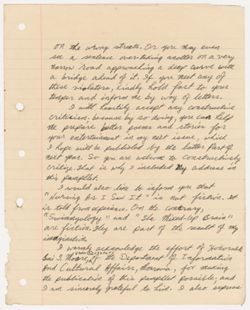 on the wrong street. Or you may even
see a sentence overtaking another on a very
narrow road approaching a deep curve with
a bridge ahead of it. If you meet any of
these violators, kindly hold fast to your
temper and inform me by way of letters.
I will heartily accept any constructive
criticism, because by so doing, you can help
me prepare better poems and stories for
your entertainment in my next issue, which
I hope will be published by the latter part of
next year. So you are welcome to constructively
criticize. That is why I included my address in
this pamphlet.
I would also like to inform you that
"Nursing As I Saw It" is not fiction. It
is told from experience. On the contrary,
"Swindlyology" and "The Mixed-Up Brain"
are fiction. They are part of the result of my
imagination.
I warmly acknowledge the effort of Honorable
S. Moore, of the Department of Information
And Cultural Affairs, Monrovia, for making
the publication of this pamphlet possible, and
I am sincerely grateful to him. I also express